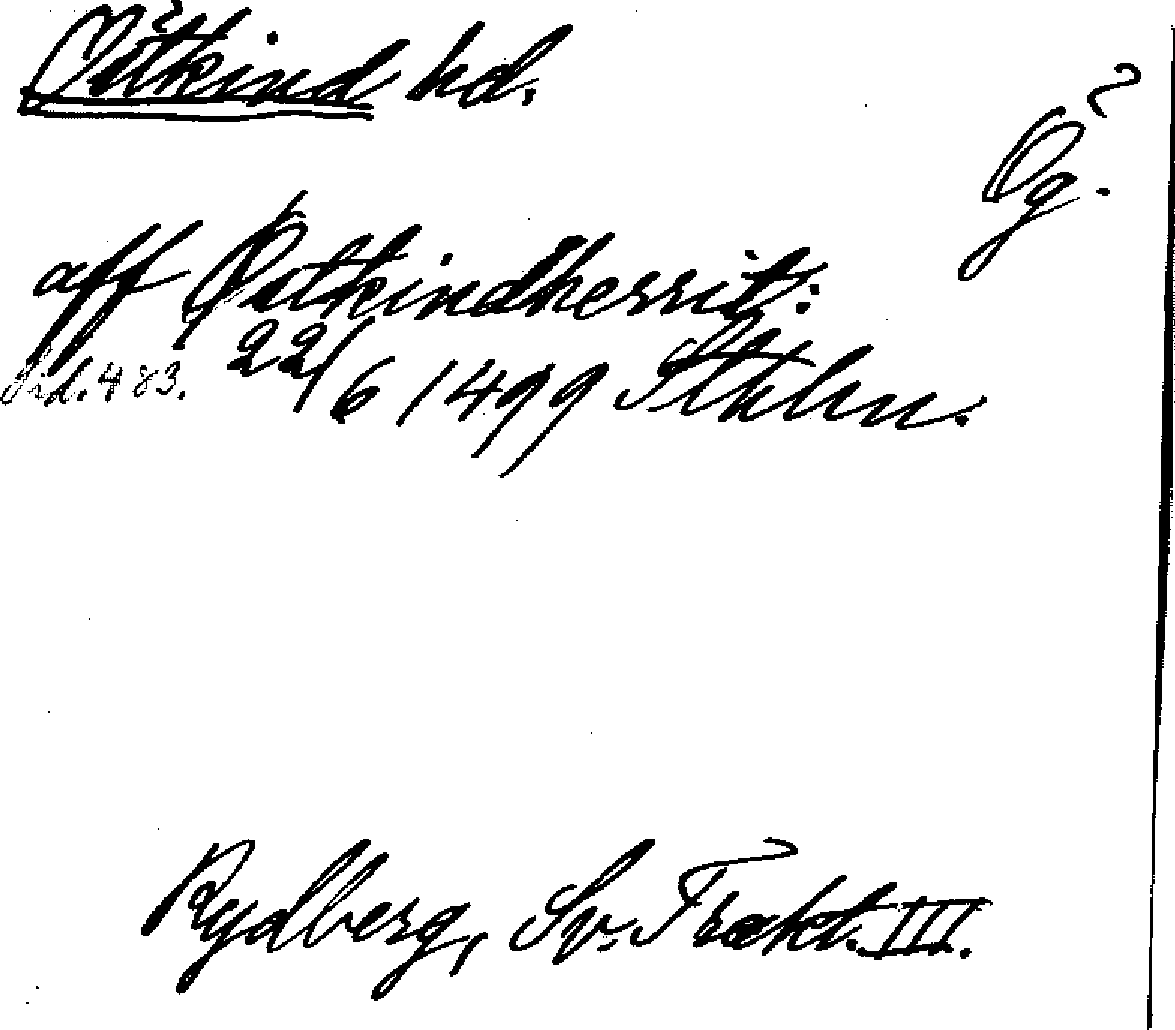 Östkind hd.
Ög.
aff Østkindherrit:
Sid. 483. 22/6 1499 Sthlm.
Rydberg, Sv. Trakt. III.